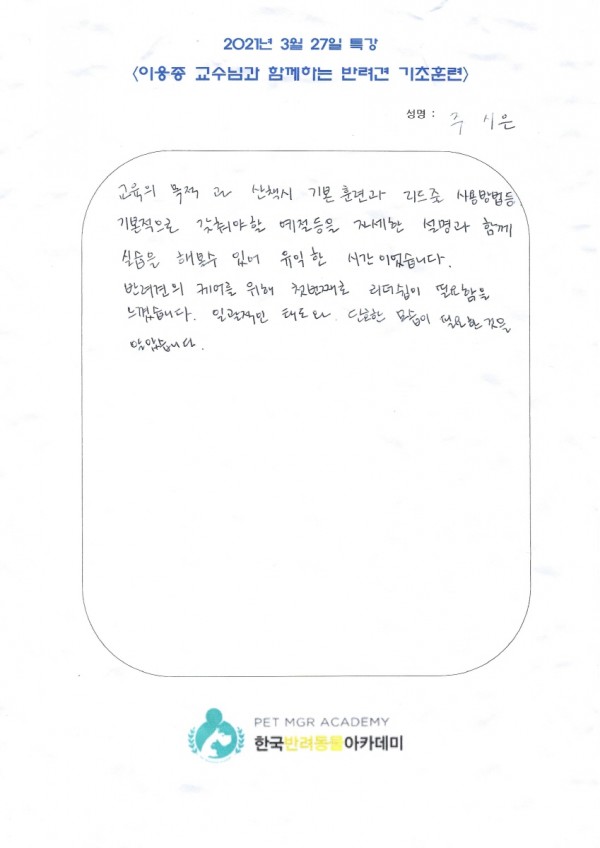 2021년 3월 27일 특강
<이웅종 교수님과 함께하는 반려견 기초훈련>
성명 : 주 시은
교육의 목적 과 산책시 기본 훈련과 리드줄 사용방법등
기본적으로 갖춰야할 예절등을 자세한 설명과 함께
실습을 해볼수 있어 유익한 시간이었습니다.
반려견의 케어를 위해 첫번째로 리더쉽이 필요함을
느꼈습니다. 일관적인 태도와 단호한 모습이 필요한것을
알았습니다.
PET MGR ACADEMY
한국반려동물아카데미